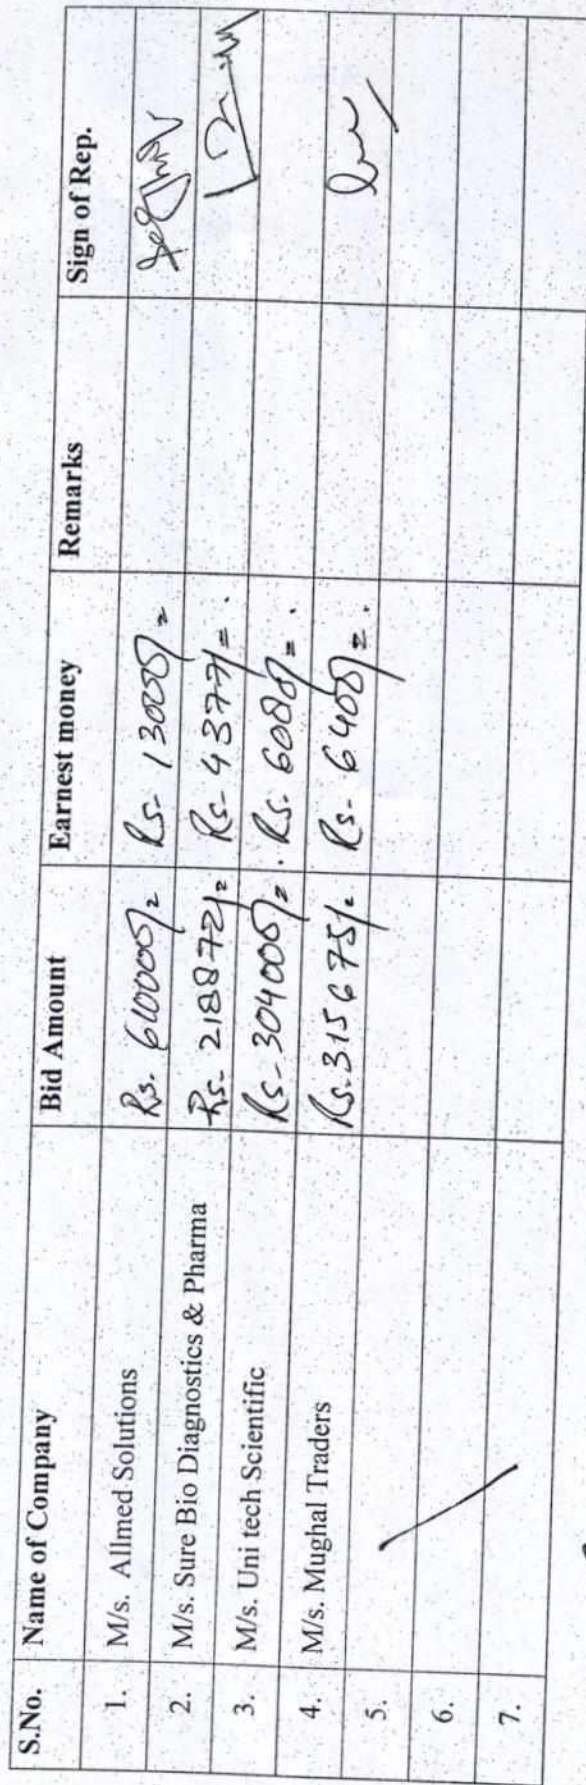 S.No. Name of Company Bid Amount Earnest money Remarks Sign of Rep.
1. M/s. Allmed Solutions Rs. 610000/= Rs- 13000/=
2. M/s. Sure Bio Diagnostics & Pharma Rs- 218872/= Rs- 4377/=.
3. M/s. Uni tech Scientific Rs- 304000/=. Rs. 6080/=.
4. M/s. Mughal Traders Rs. 315675/= Rs- 6400/=.
5.
6.
7.